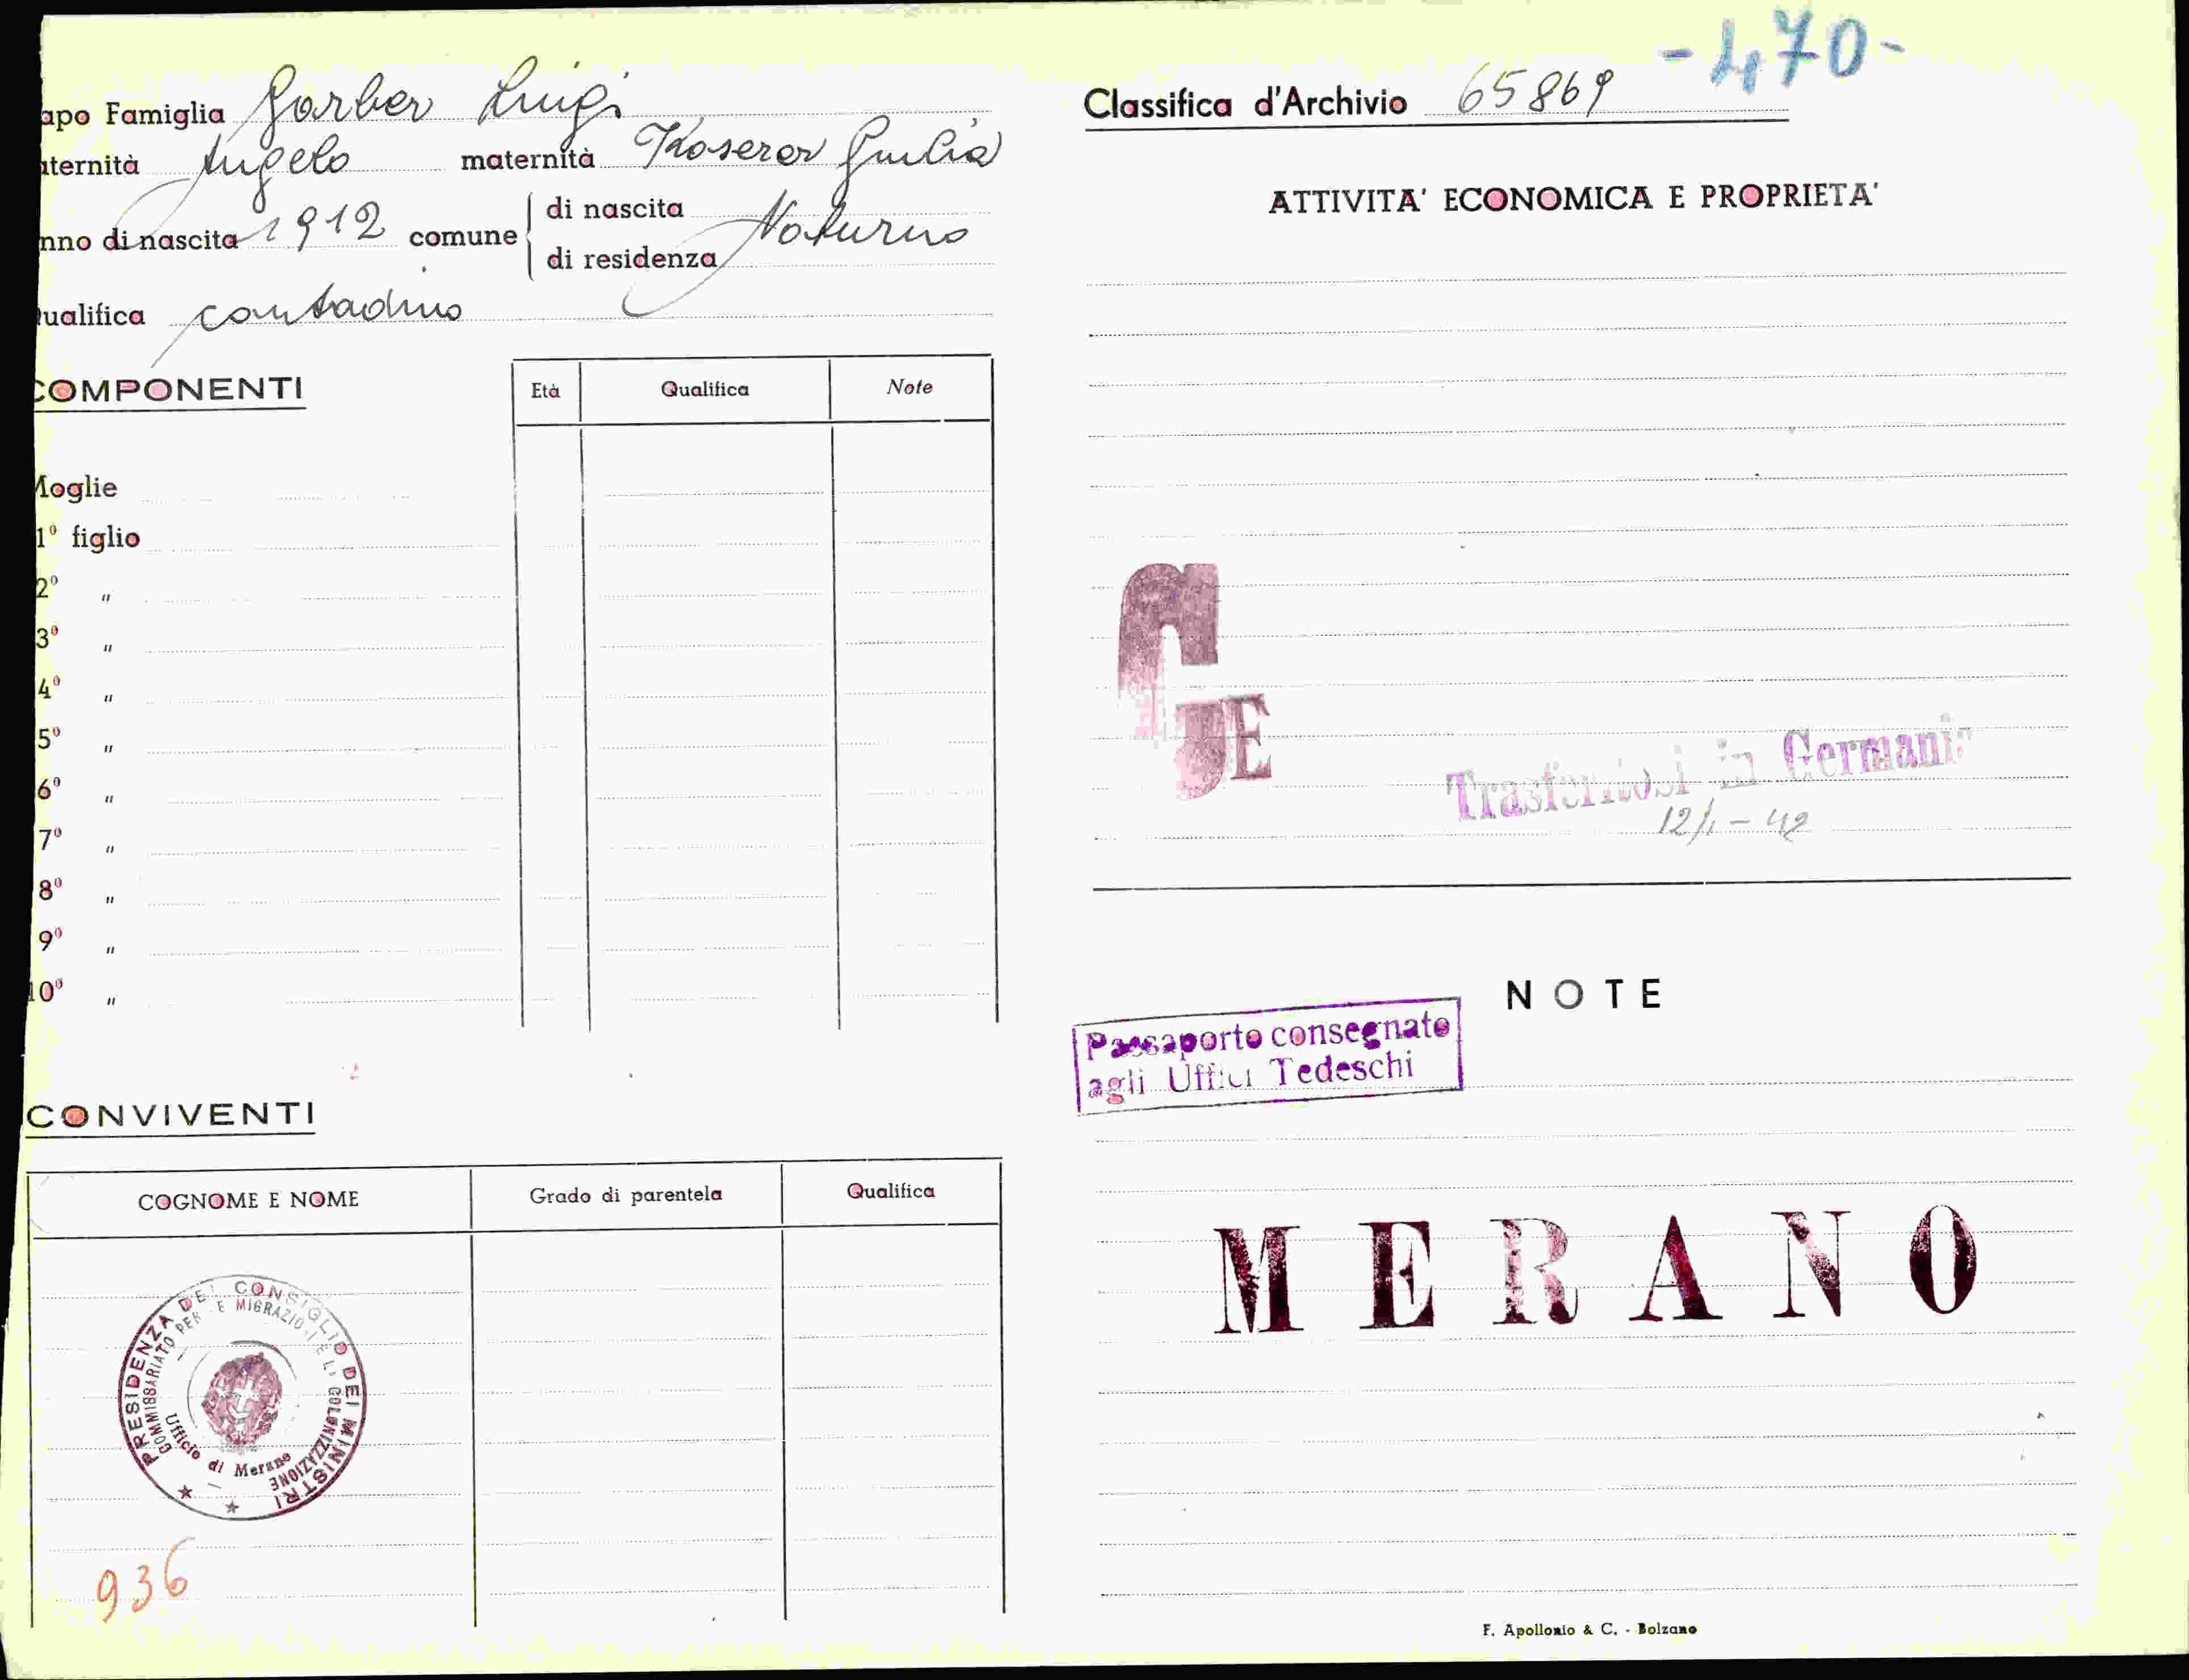 apo Famiglia Garber Luigi
aternità Angelo maternità Koserer Giulia
nno di nascita 1912 comune di nascita Naturno
di residenza
ualifica contadino
COMPONENTI
Età Qualifica Note
Moglie
1º figlio
2º "
3º "
4º "
5º "
6º "
7º "
8º "
9º "
10º "
CONVIVENTI
COGNOME E NOME Grado di parentela Qualifica
PRESIDENZA DEL CONSIGLIO DEI MINISTRI
COMMISSARIATO PER LE MIGRAZIONI E LA COLONIZZAZIONE
Ufficio di Merano
936
-470-
Classifica d'Archivio 65869
ATTIVITA' ECONOMICA E PROPRIETA'
E
Trasferitosi in Germania
12/1-42
NOTE
Passaporto consegnato
agli Uffici Tedeschi
MERANO
F. Apollonio & C. - Bolzano